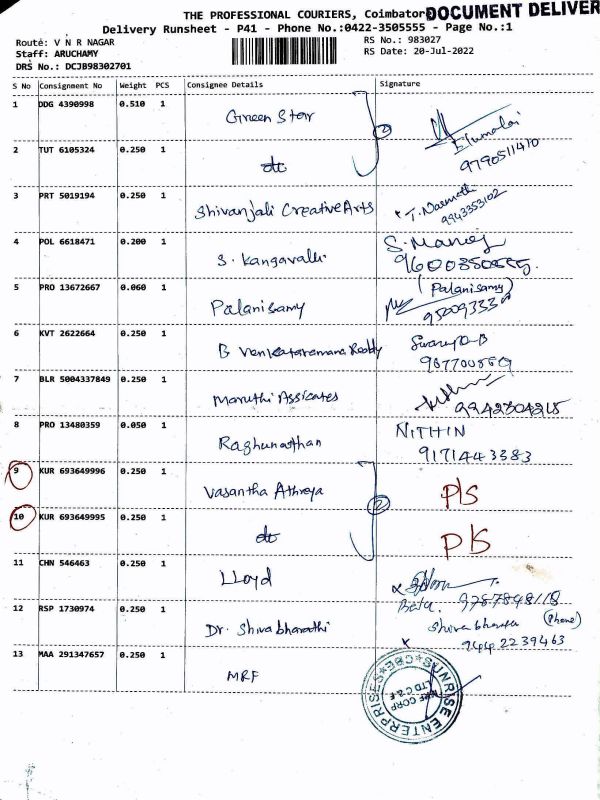 THE PROFESSIONAL COURIERS, Coimbator
DOCUMENT DELIVER
Delivery Runsheet - P41 - Phone No.:0422-3505555 - Page No.:1
Route: V N R NAGAR
Staff: ARUCHAMY
DRS No.: DCJB98302701
RS No.: 983027
RS Date: 20-Jul-2022
S No Consignment No Weight PCS Consignee Details Signature
1 DDG 4390998 0.510 1 Green Star 2 Elumalai
9790511410
2 TUT 6105324 0.250 1 do
3 PRT 5019194 0.250 1 Shivanjali Creative Arts
9943353102
4 POL 6618471 0.200 1 S. Kangavalli S. Manoj
5 PRO 13672667 0.060 1 Palanisamy (Palanisamy)
6 KVT 2622664 0.250 1 B Venkataramana Reddy
7 BLR 5004337849 0.250 1 Maruthi Assicates
9942304215
8 PRO 13480359 0.050 1 Raghunathan NITHIN
9171443383
9 KUR 693649996 0.250 1 Vasantha Athreya 2 P/S
10 KUR 693649995 0.250 1 do P/S
11 CHN 546463 0.250 1 LLoyd
9787848118
12 RSP 1730974 0.250 1 Dr. Shiva bharathi Shiva bharathi (Phone)
9442239463
13 MAA 291347657 0.250 1 MRF
SUNRISE ENTERPRISES CBE
MRF CORP
LTD C & F